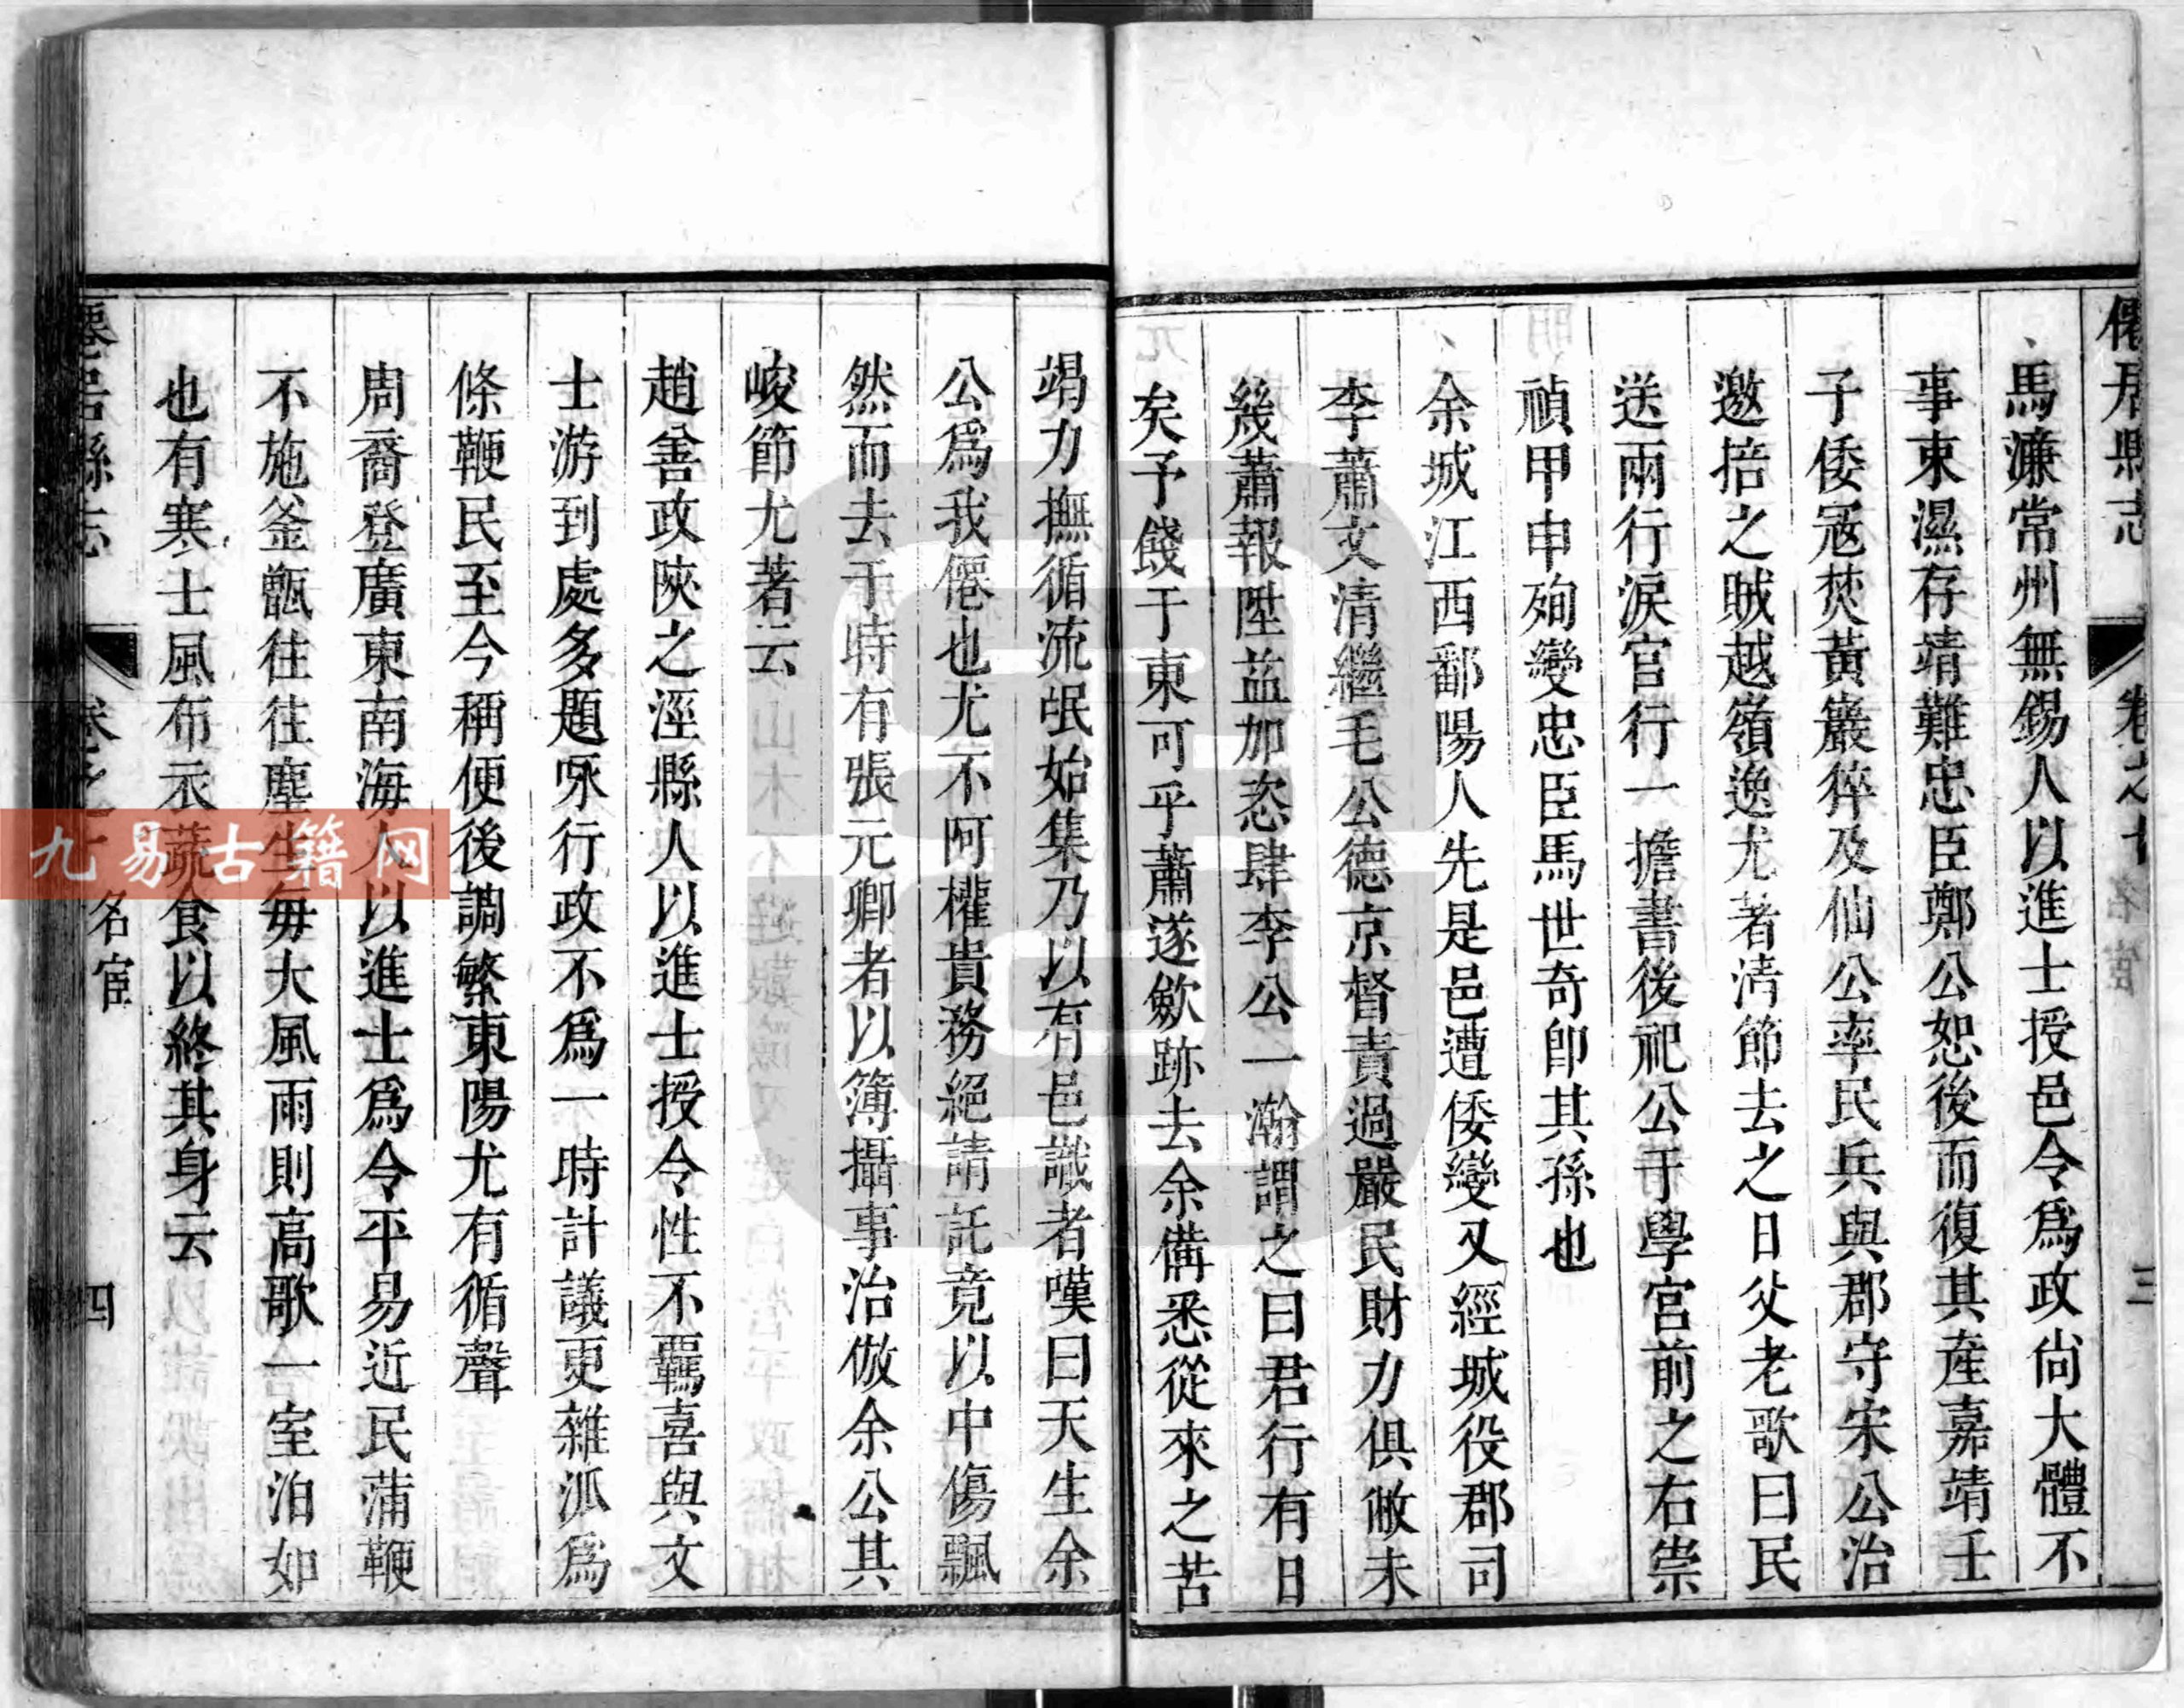 僊居縣志
卷之七
名宦
三
馬濂常州無錫人以進士授邑令爲政尙大體不
事束濕存靖難忠臣鄭公恕後而復其産嘉靖壬
子倭寇焚黃巖猝及仙公率民兵與郡守宋公治
邀掊之賊越嶺逸尤著淸節去之日父老歌曰民
送兩行淚官行一擔書後祀公于學宮前之右崇
禎甲申殉變忠臣馬世奇卽其孫也
余城江西鄱陽人先是邑遭倭變又經城役郡司
李蕭文清繼毛公德京督責過嚴民財力俱敝未
幾蕭報陞益加恣肆李公一瀚謂之曰君行有日
矣予餞于東可乎蕭遂歛跡去余備悉從來之苦
竭力撫循流氓始集乃以有邑識者嘆曰天生余
公爲我僊也尤不阿權貴務絕請託竟以中傷飄
然而去于時有張元卿者以簿攝事治倣余公其
峻節尤著云
趙善政陝之涇縣人以進士授令性不羈喜與文
士游到處多題咏行政不爲一時計議更雜泒爲
條鞭民至今稱便後調繁東陽尤有循聲
周裔登廣東南海人以進士爲令平易近民蒲鞭
不施釜甑往往塵生每大風雨則高歌一室泊如
也有寒士風布衣蔬食以終其身云
僊居縣志
卷之七
名宦
四
九易古籍网